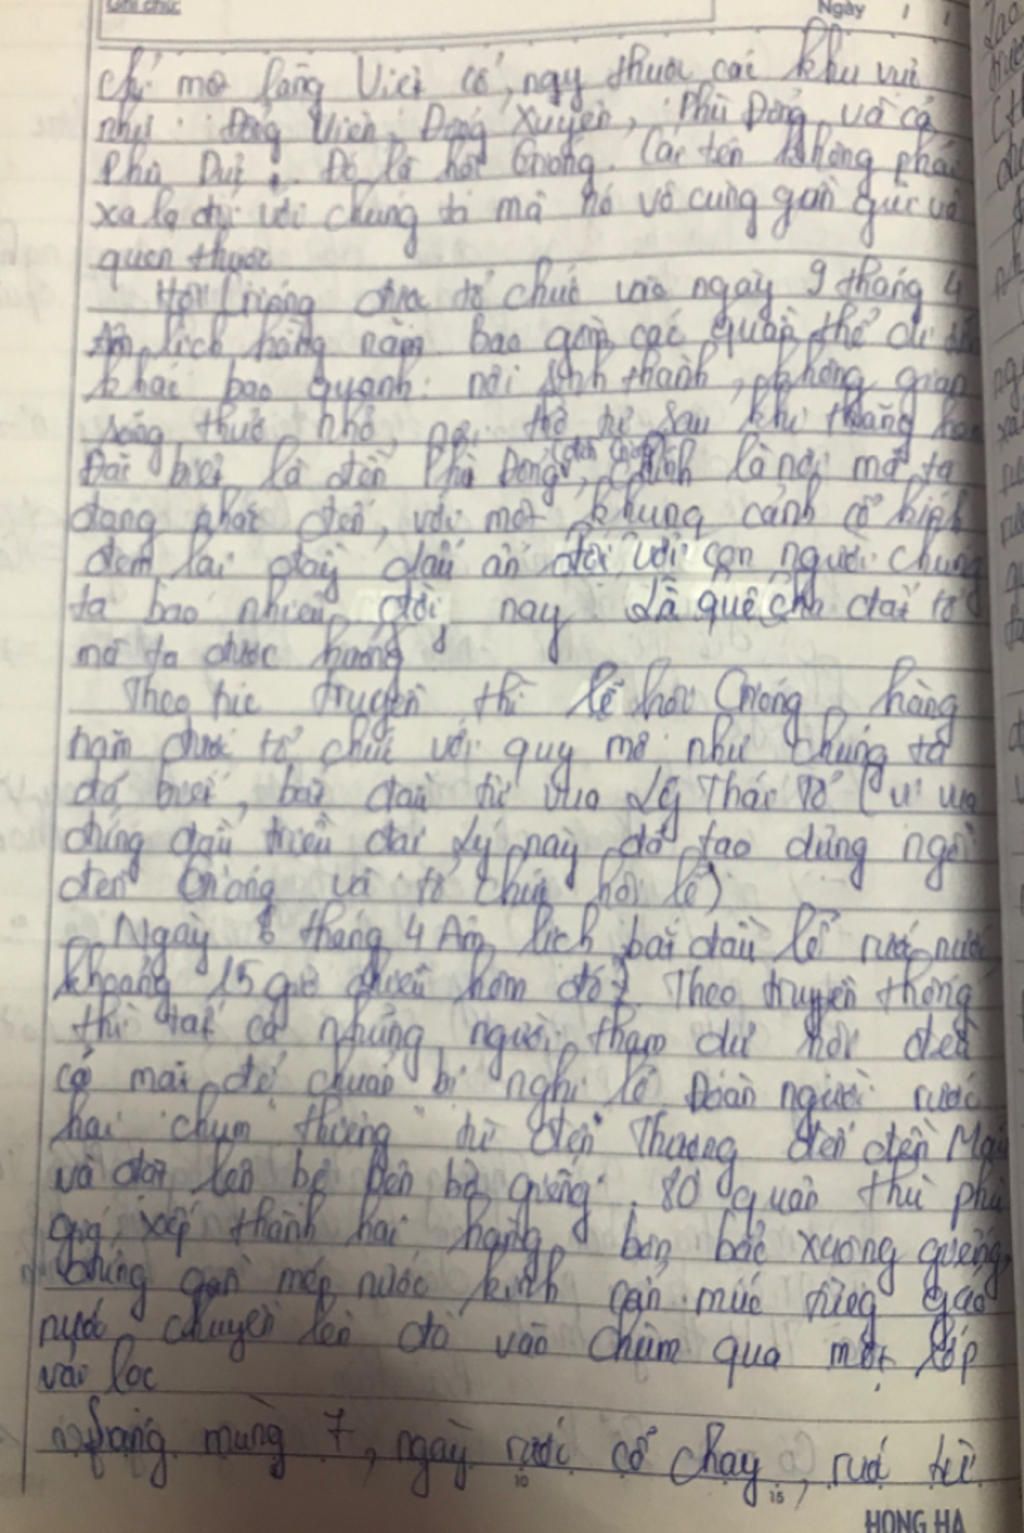 Ghi chú: Ngày / /
chỉ một làng Việt cổ, nay thuộc các khu vực
như: Đổng Viên, Đổng Xuyên, Phù Đổng và cả
Phù Dực. Đó là hội Gióng. Các tên không phải
xa lạ đối với chúng ta mà nó vô cùng gần gũi và
quen thuộc
Hội Gióng được tổ chức vào ngày 9 tháng 4
Âm lịch hàng năm bao gồm các quần thể di
khác bao quanh: nơi sinh thành, không gian
sống thuở nhỏ, nơi thờ tự sau khi thắng
Đặc biệt là đền Phù Đổng, chính là nơi mà ta
đang nhắc đến, với một khung cảnh cổ kính
đem lại đầy dấu ấn đối với con người chúng
ta bao nhiêu đời nay. Là quê cha đất tổ
mà ta được hưởng
Theo truyền thì lễ hội Gióng hàng
năm được tổ chức với quy mô như chúng ta
đã biết, bắt đầu từ vua Lý Thái Tổ (vị vua
đứng đầu triều đại Lý này đã tạo dựng ngôi
đền Gióng và tổ chức hội lễ)
Ngày 6 tháng 4 Âm lịch bắt đầu lễ rước nước
khoảng 15 giờ chiều hôm đó. Theo truyền thống
thì tất cả những người tham dự hội đều
có mặt để chuẩn bị nghi lễ. Đoàn người rước
hai chum từ đền Thượng đến đền Mẫu
và đặt lên bệ bên bờ giếng. 80 quân thù phù
giá xếp thành hai hàng bên bậc xuống giếng,
đứng gần mép nước kính cẩn múc từng gáo
nước chuyền lên đổ vào chum qua một lớp
vải lọc
sáng mùng 7, ngày rước cỗ chay, rước từ
10 15
HONG HA